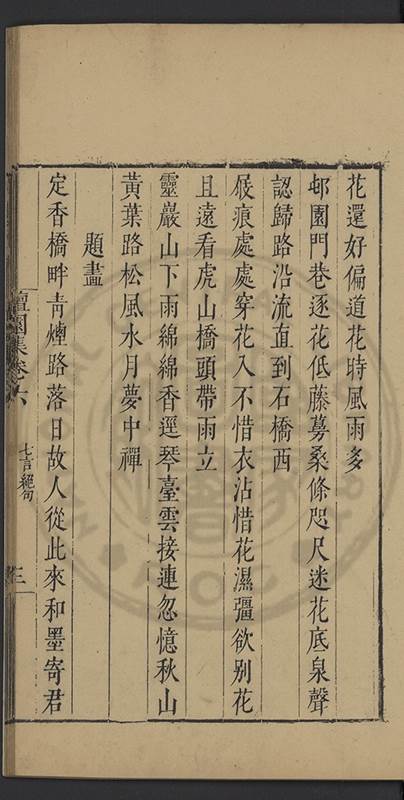 花還好偏道花時風雨多
邨園門巷逐花低藤蔓桑條咫尺迷花底泉聲
認歸路沿流直到石橋西
屐痕處處穿花入不惜衣沾惜花濕彊欲別花
且遠看虎山橋頭帶雨立
靈巖山下雨綿綿香逕琴臺雲接連忽憶秋山
黃葉路松風水月夢中禪
題畫
定香橋畔青煙路落日故人從此來和墨寄君
檀園集卷六
七言絕句